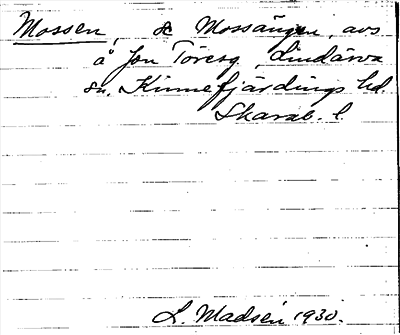 Mossen, se Mossängen, avs
å Jon Töresg, Lindärva
sn. Kinnefjärdings hd.
Skarab. l.
L. Madsén 1930.